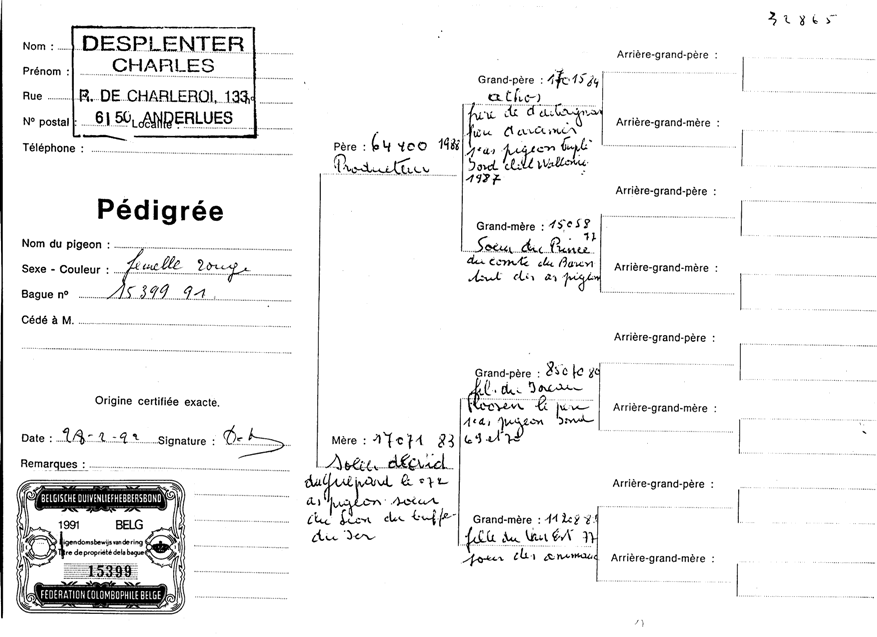 32865
Nom :
DESPLENTER
Prénom :
CHARLES
Rue
R. DE CHARLEROI, 133
N° postal :
6150 ANDERLUES
Localité :
Téléphone :
Pédigrée
Nom du pigeon :
Sexe - Couleur : femelle rouge
Bague n° 15399 91
Cédé à M.
Origine certifiée exacte.
Date : 28-2-92 Signature :
Remarques :
BELGISCHE DUIVENLIEFHEBBERSBOND
1991 BELG
Eigendomsbewijs van de ring
Titre de propriété de la bague
15399
FEDERATION COLOMBOPHILE BELGE
Père : 64400 1988
Producteur
Mère : 17071 83
Soeur
du Guépard le 072
as pigeon soeur
du Lion du
du
Grand-père : 1701584
athos
père de d'artagnan
père d'aramis
1 as pigeon
Wallonie
1987
Grand-mère : 15058
77
Soeur du Prince
du comte du Baron
tout des as pigeon
Grand-père :
fils du
le père
1 as pigeon
69 et 70
Grand-mère :
fille du 77
soeur des
Arrière-grand-père :
Arrière-grand-mère :
Arrière-grand-père :
Arrière-grand-mère :
Arrière-grand-père :
Arrière-grand-mère :
Arrière-grand-père :
Arrière-grand-mère :